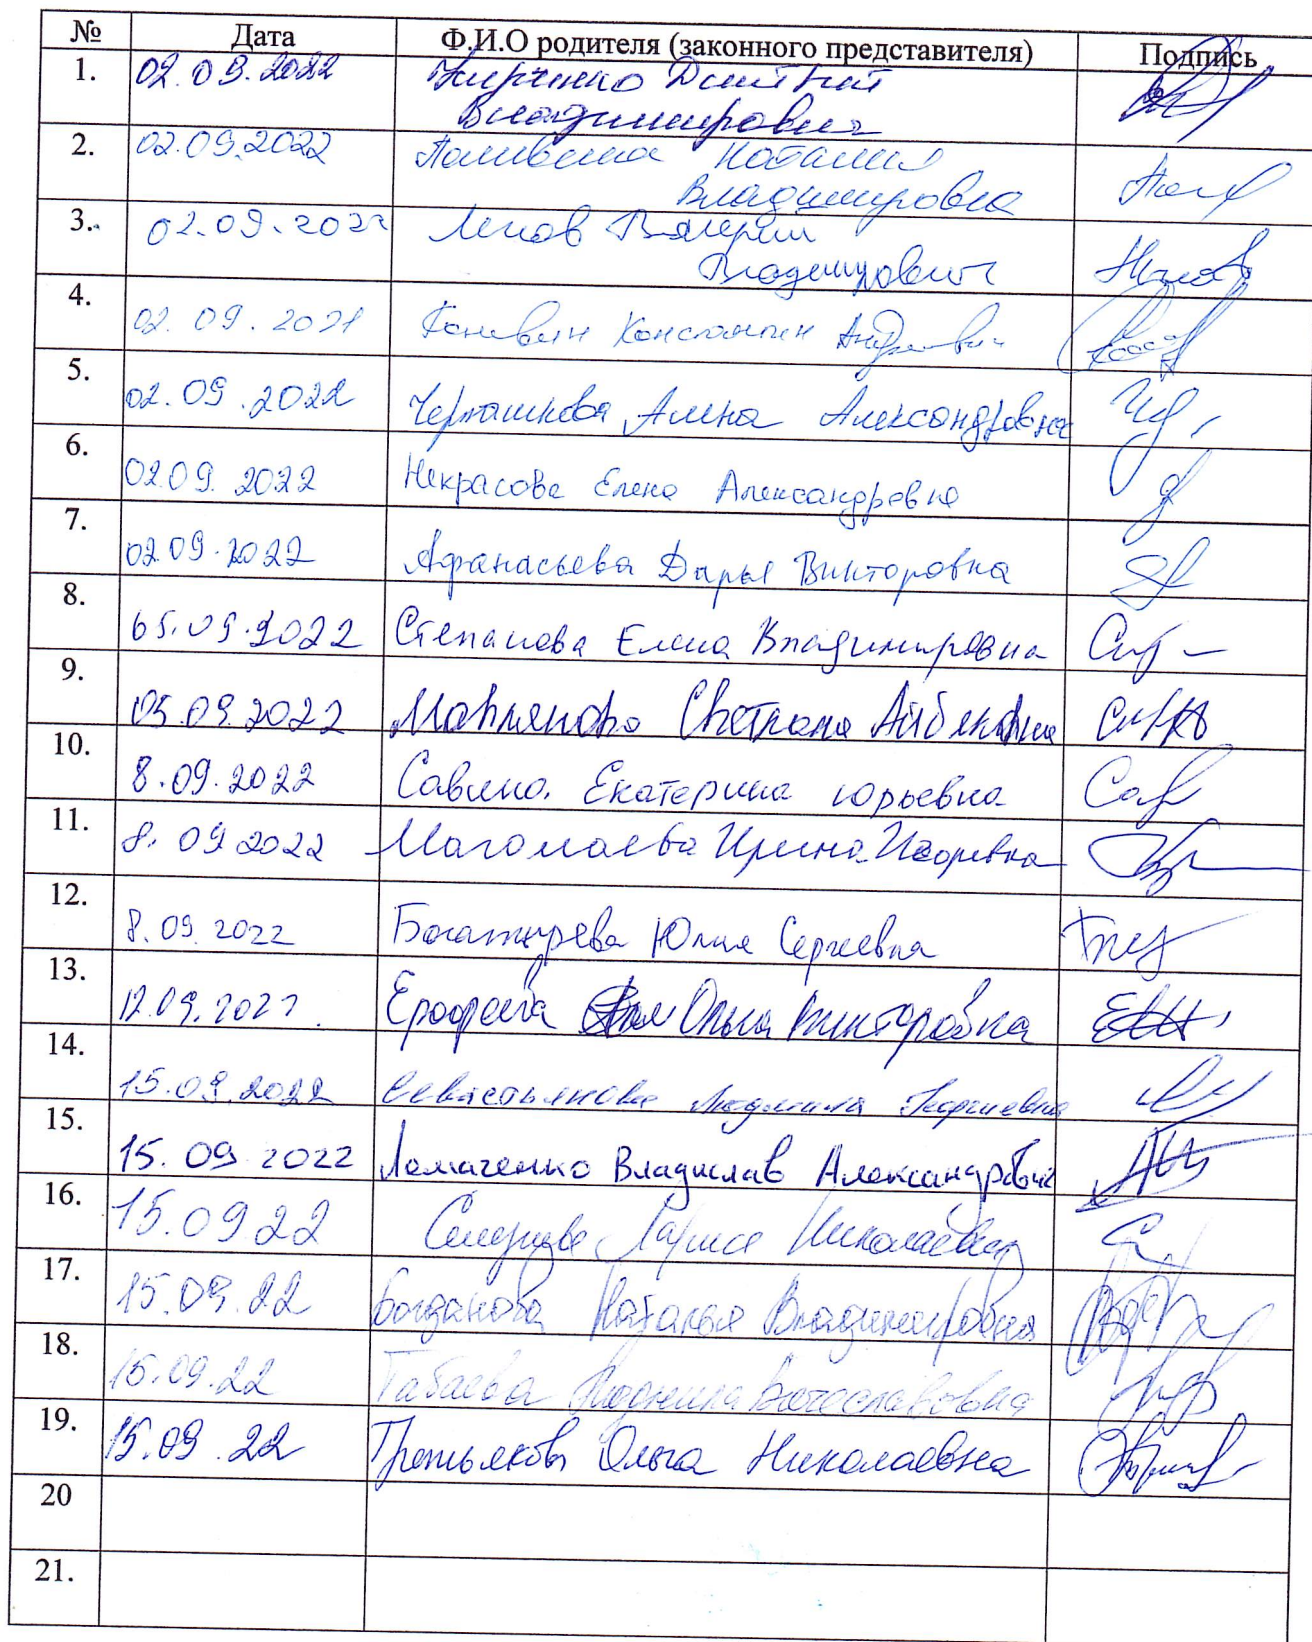 № Дата Ф.И.О родителя (законного представителя) Подпись
1. 02.09.2022 Кирченко Дмитрий
Владимирович
2. 02.09.2022 Наталия
Владимировна
3. 02.09.2022 Валерий
Владимирович
4. 02.09.2021 Константин Андреевич
5. 02.09.2022 Алена Александровна
6. 02.09.2022 Некрасова Елена Александровна
7. 02.09.2022 Афанасьева Дарья Викторовна
8. 05.09.2022 Степанова Елена Владимировна
9. 05.09.2022 Мавлянова Светлана Айбековна
10. 8.09.2022 Савина Екатерина юрьевна
11. 8.09 2022 Магомаева Ирина Игоревна
12. 8.09.2022 Богатырева Юлия Сергеевна
13. 12.09.2022 Ерофеева Ольга Викторовна
14. 15.09.2022 Севастьянова Людмила Георгиевна
15. 15.09 2022 Ломаченко Владислав Александрович
16. 15.09 22 Лариса Николаевна
17. 15.09.22 Богданова Наталья Владимировна
18. 15.09.22 Табаева Людмила Вячеславовна
19. 15.09.22 Третьякова Ольга Николаевна
20
21.